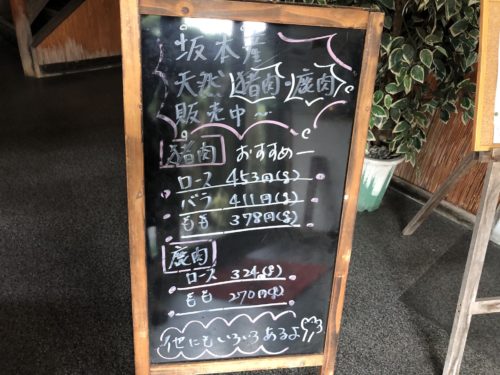 坂本産
天然 猪肉・鹿肉
販売中〜
猪肉 おすすめー
ロース 453円(g)
バラ 411円(g)
もも 378円(g)
鹿肉
ロース 324(g)
もも 270円(g)
他にもいろいろあるよ